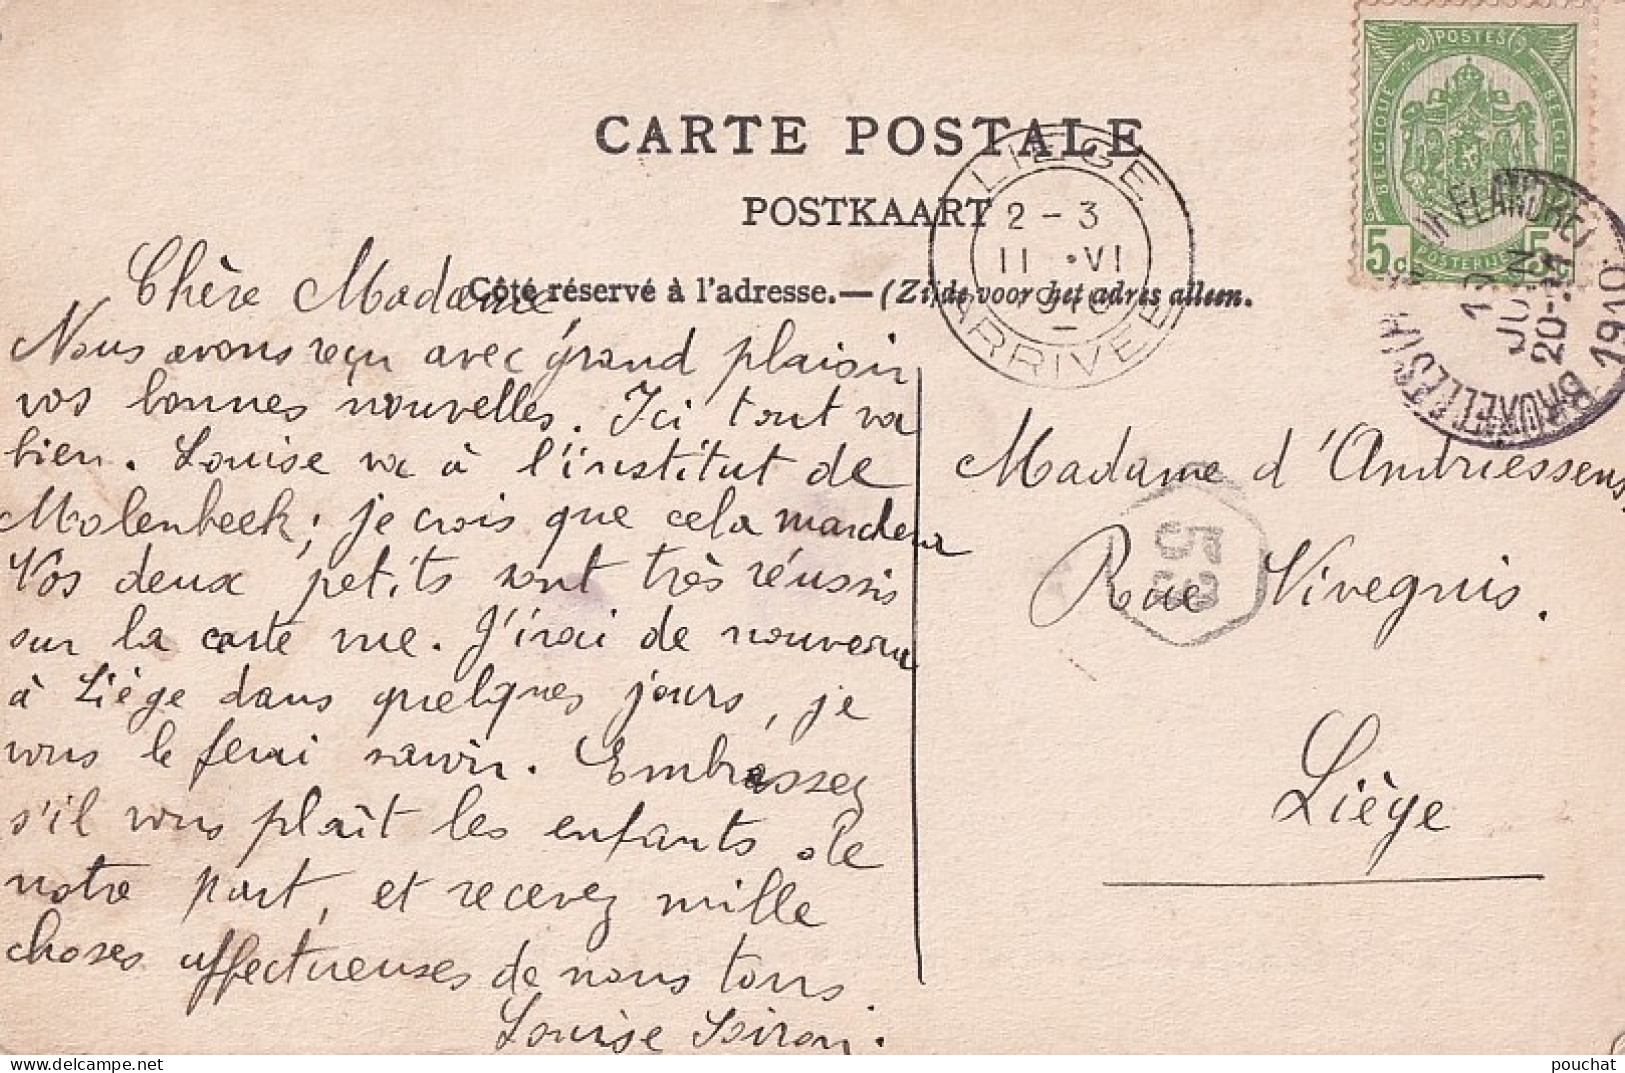 POSTES
BELGIQUE
BELGIE
5c
5c
POSTERIJEN
CARTE POSTALE
POSTKAART
Côté réservé à l'adresse.—(Zijde voor het adres alleen.
LIEGE
2 - 3
11 · VI
1910
ARRIVEE
BRUXELLES
JUIN
1910
Chère Madame,
Nous avons reçu avec grand plaisir
vos bonnes nouvelles. Ici tout va
bien. Louise va à l'institut de
Molenbeek; je crois que cela marchera
Vos deux petits sont très réussis
sur la carte vue. J'irai de nouveau
à Liège dans quelques jours, je
vous le ferai savoir. Embrassez
s'il vous plaît les enfants de
notre part, et recevez mille
choses affectueuses de nous tous.
Louise
Madame d'Andriessens
53
Rue Vivegnis.
Liège
pouchat